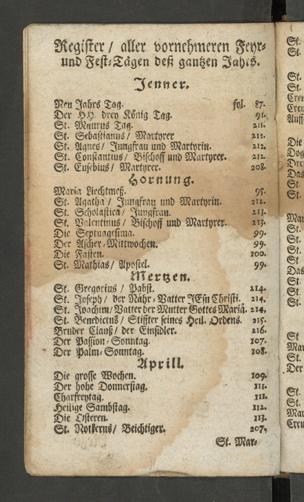 Register / aller vornehmeren Feyr-
und Fest-Tägen deß gantzen Jahrs.
Jenner.
Neu Jahrs Tag. fol. 87.
Der HH. drey König Tag. 91.
St. Maurus Tag. 211.
St. Sebastianus / Martyrer 211.
St. Agnes / Jungfrau und Martyrin. 212.
St. Constantius / Bischoff und Martyrer. 212.
St. Eusebius / Martyrer. 208.
Hornung.
Maria Liechtmeß. 95.
St. Agatha / Jungfrau und Martyrin. 212.
St. Scholastica / Jungfrau. 213.
St. Valentinus / Bischoff und Martyrer. 213.
Die Septuagesima. 99.
Der Ascher-Mittwochen. 99.
Die Fasten. 100.
St. Mathias / Apostel. 99.
Mertzen.
St. Gregorius / Pabst. 214.
St. Joseph / der Nähr-Vatter JEsu Christi. 214.
St. Joachim / Vatter der Mutter Gottes Mariä. 214.
St. Benedictus / Stiffter seines Heil. Ordens. 215.
Bruder Clauß / der Einsidler. 216.
Der Passion-Sonntag. 107.
Der Palm-Sonntag. 108.
Aprill.
Die grosse Wochen. 109.
Der hohe Donnerstag. 111.
Charfreytag. 111.
Heilige Sambstag. 112.
Die Osteren. 113.
St. Notkerus / Beichtiger. 207.
St. Mar-